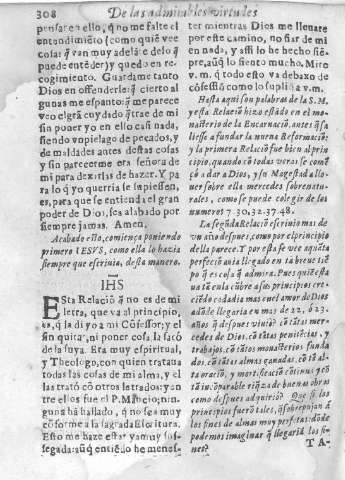 308 De las admirables virtudes
pensar en ello, q̃ no me falte el
entendimiẽto (como quiẽ vee
cosas q̃ van muy adelãte de lo q̃
puede entẽder) y quedo en re-
cogimiento. Guardame tanto
Dios en offenderle: q̃ cierto al
gunas me espanto: q̃ me parece
veo el grã cuydado q̃ trae de mi
sin poner yo en ello casi nada,
siendo vn pielago de pecados, y
de maldades antes destas cosas
y sin parecerme era señora de
mi para dexarlas de hazer. Y pa
ra lo q̃ yo querria se supiessen,
es, para que se entienda el gran
poder de Dios, sea alabado por
siempre jamas. Amen.
Acabado esto, comiença poniendo
primero IESVS, como ella lo hazia
siempre que escriuia, desta manera.
IHS
ESta Relaciõ q̃ no es de mi
letra, que va al principio,
es, q̃ la di yo a mi Cõfessor; y el
sin quitar, ni poner cosa, la sacò
de la suya. Era muy espiritual,
y Theologo, con quien trataua
todas las cosas de mi alma, y el
las tratò cõ otros letrados: y an
tre ellos fue el P. Mãcio, nin-
guna hã hallado, q̃ no sea muy
cõforme a la sagrada Escritura.
Esto me haze estar ya muy sos-
segada: aũq̃ entiẽdo he menes-
ter mientras Dios me lleuare
por este camino, no fiar de mi
en nada, y assi lo he hecho siẽ-
pre, aũq̃ lo siento mucho. Mire
v. m. q̃ todo esto va debaxo de
cõfessiõ como lo suplîq̃ a v. m.
Hasta aqui son palabras de la S. M.
y esta Relaciõ hizo estãdo en el mo-
nasterio de la Encarnaciõ, antes q̃ sa
liesse a fundar la nueua Reformaciõ:
y la primera Relaciõ fue bien al prin
cipio, quando cõ todas veras se comẽ
çò a dar a Dios, y su Magestad a llo-
uer sobre ella mercedes sobrenatu-
rales, como se puede colegir de los
numeros 7. 30. 32. 37. 48.
La segũda Relaciõ escriuio mas de
vn año despues, como por el principio
della parece. Y por esta se vee quãta
perfeciõ auia llegado en tã breue tiẽ
po q̃ es cosa q̃ admira. Pues quiẽ esta
ua tã en la cũbre a los principios; cre-
ciẽdo cada dia mas en el amor de Dios
adõde llegaria en mas de 22, ò 23.
años q̃ despues viuio? cõ tãtas mer-
cedes de Dios. cõ tãtas penitẽcias, y
trabajos. cõ tãtos monasterios funda
dos. cõ tãtas almas ganadas. cõ tã al-
ta oraciõ, y mortificaciõ continua; y cõ
tã incõparable riq̃za de buenas obras
como despues adquirio? Que si los
principios fuerõ tales, q̃ sobrepujan à
los fines de almas muy fruttas: dõde
podemos imaginar q̃ llegariã los fi-
TA-